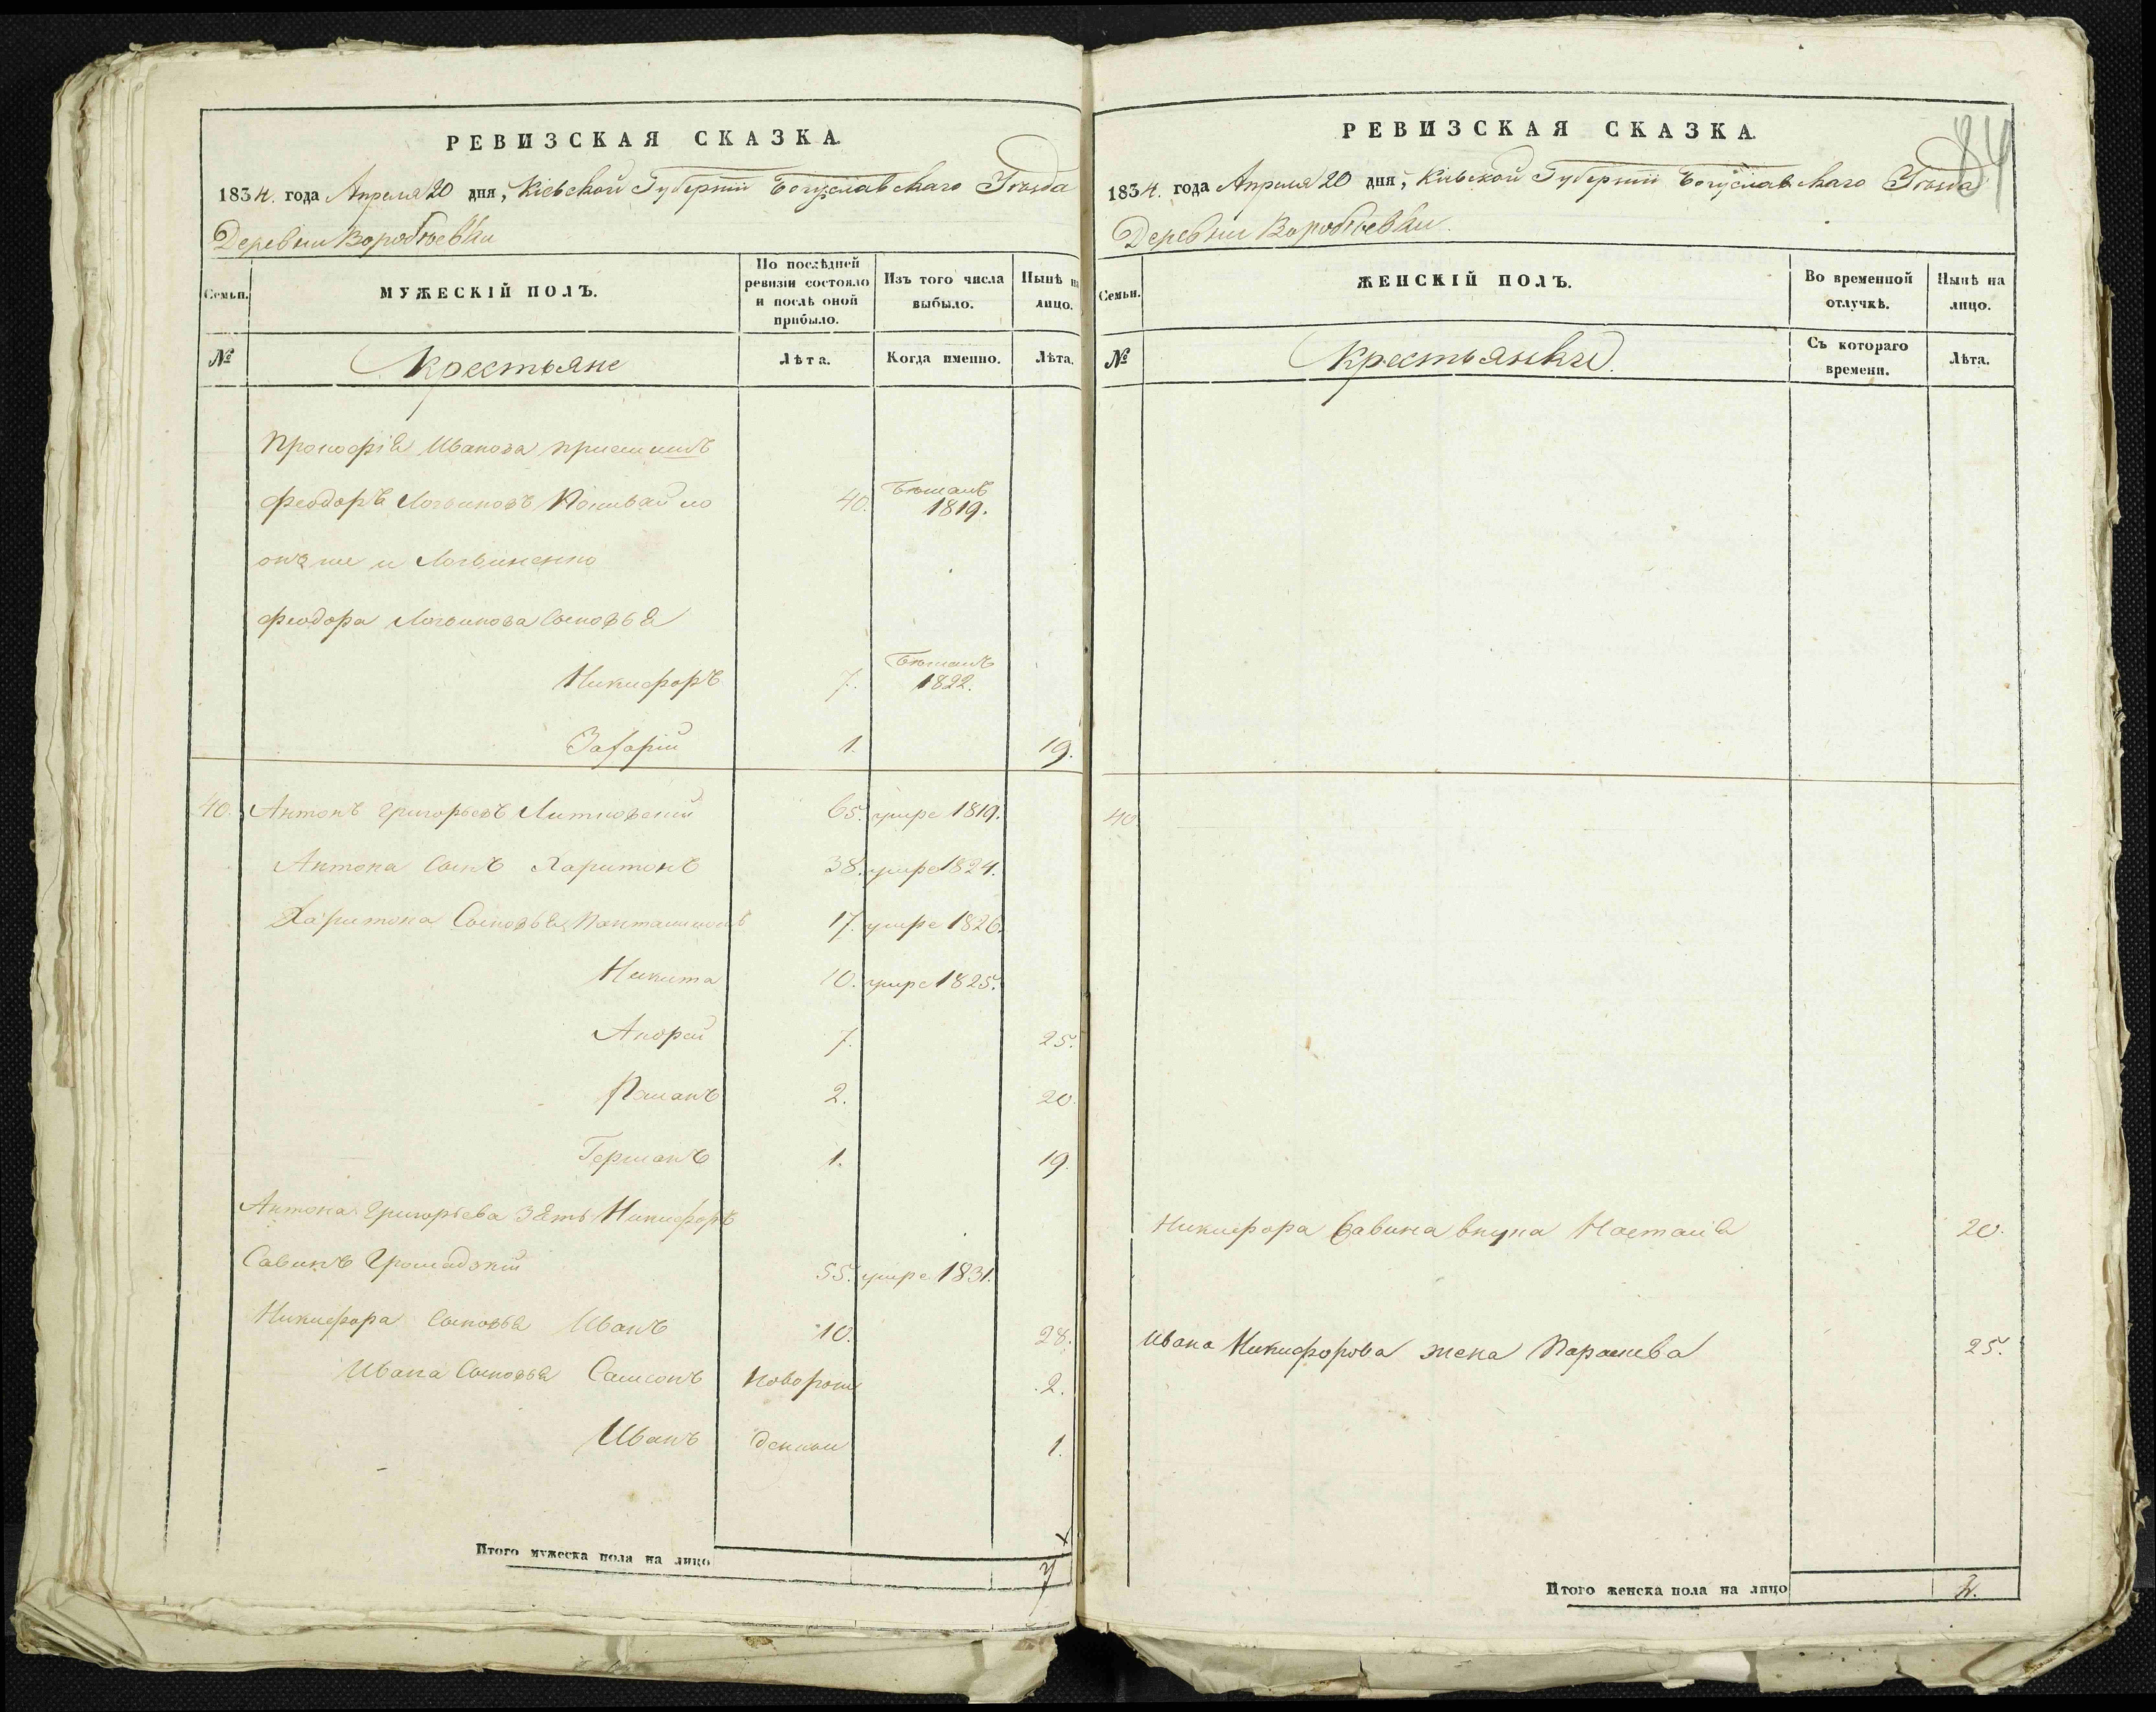 РЕВИЗСКАЯ СКАЗКА.
1834. года Апреля 20 дня, Кіевской Губерніи Богуславскаго Уѣзда
Деревни Воробіовки
Семьи.
МУЖЕСКІЙ ПОЛЪ.
По послѣдней ревизіи состояло и послѣ оной прибыло.
Изъ того числа выбыло.
Нынѣ на лицо.
№
Крестьяне
Лѣта.
Когда именно.
Лѣта.
Прокофія Иванова приемышъ
Феодоръ Логвиновъ 40. бѣжалъ 1819.
онъ же и Логвиненко
Феодора Логвинова Сыновья
Никифоръ 7. бѣжалъ 1822.
Захарій 1. 19.
40. Антонъ Григорьевъ Литковскій 65. умре 1819.
Антона Сынъ Харитонъ 38. умре 1824.
Харитона Сыновья Панталимонъ 17. умре 1826.
Никита 10. умре 1825.
Андрей 7. 25.
Романъ 2. 20.
Германъ 1. 19.
Антона Григорьева Зять Никифоръ
Савинъ Громадзкій 55. умре 1831.
Никифора Сыновья Иванъ 10. 28.
Ивана Сыновья Самсонъ Новорож 2.
Иванъ денные 1.
Итого мужеска пола на лицо 7
84
РЕВИЗСКАЯ СКАЗКА.
1834. года Апреля 20 дня, Кіевской Губерніи Богуславскаго Уѣзда
Деревни Воробіовки.
Семьи.
ЖЕНСКІЙ ПОЛЪ.
Во временной отлучкѣ.
Нынѣ на лицо.
№
Крестьянки.
Съ котораго времени.
Лѣта.
40
Никифора Савина внука Настасія 20.
Ивана Никифорова жена Параскева 25.
Итого женска пола на лицо 2.